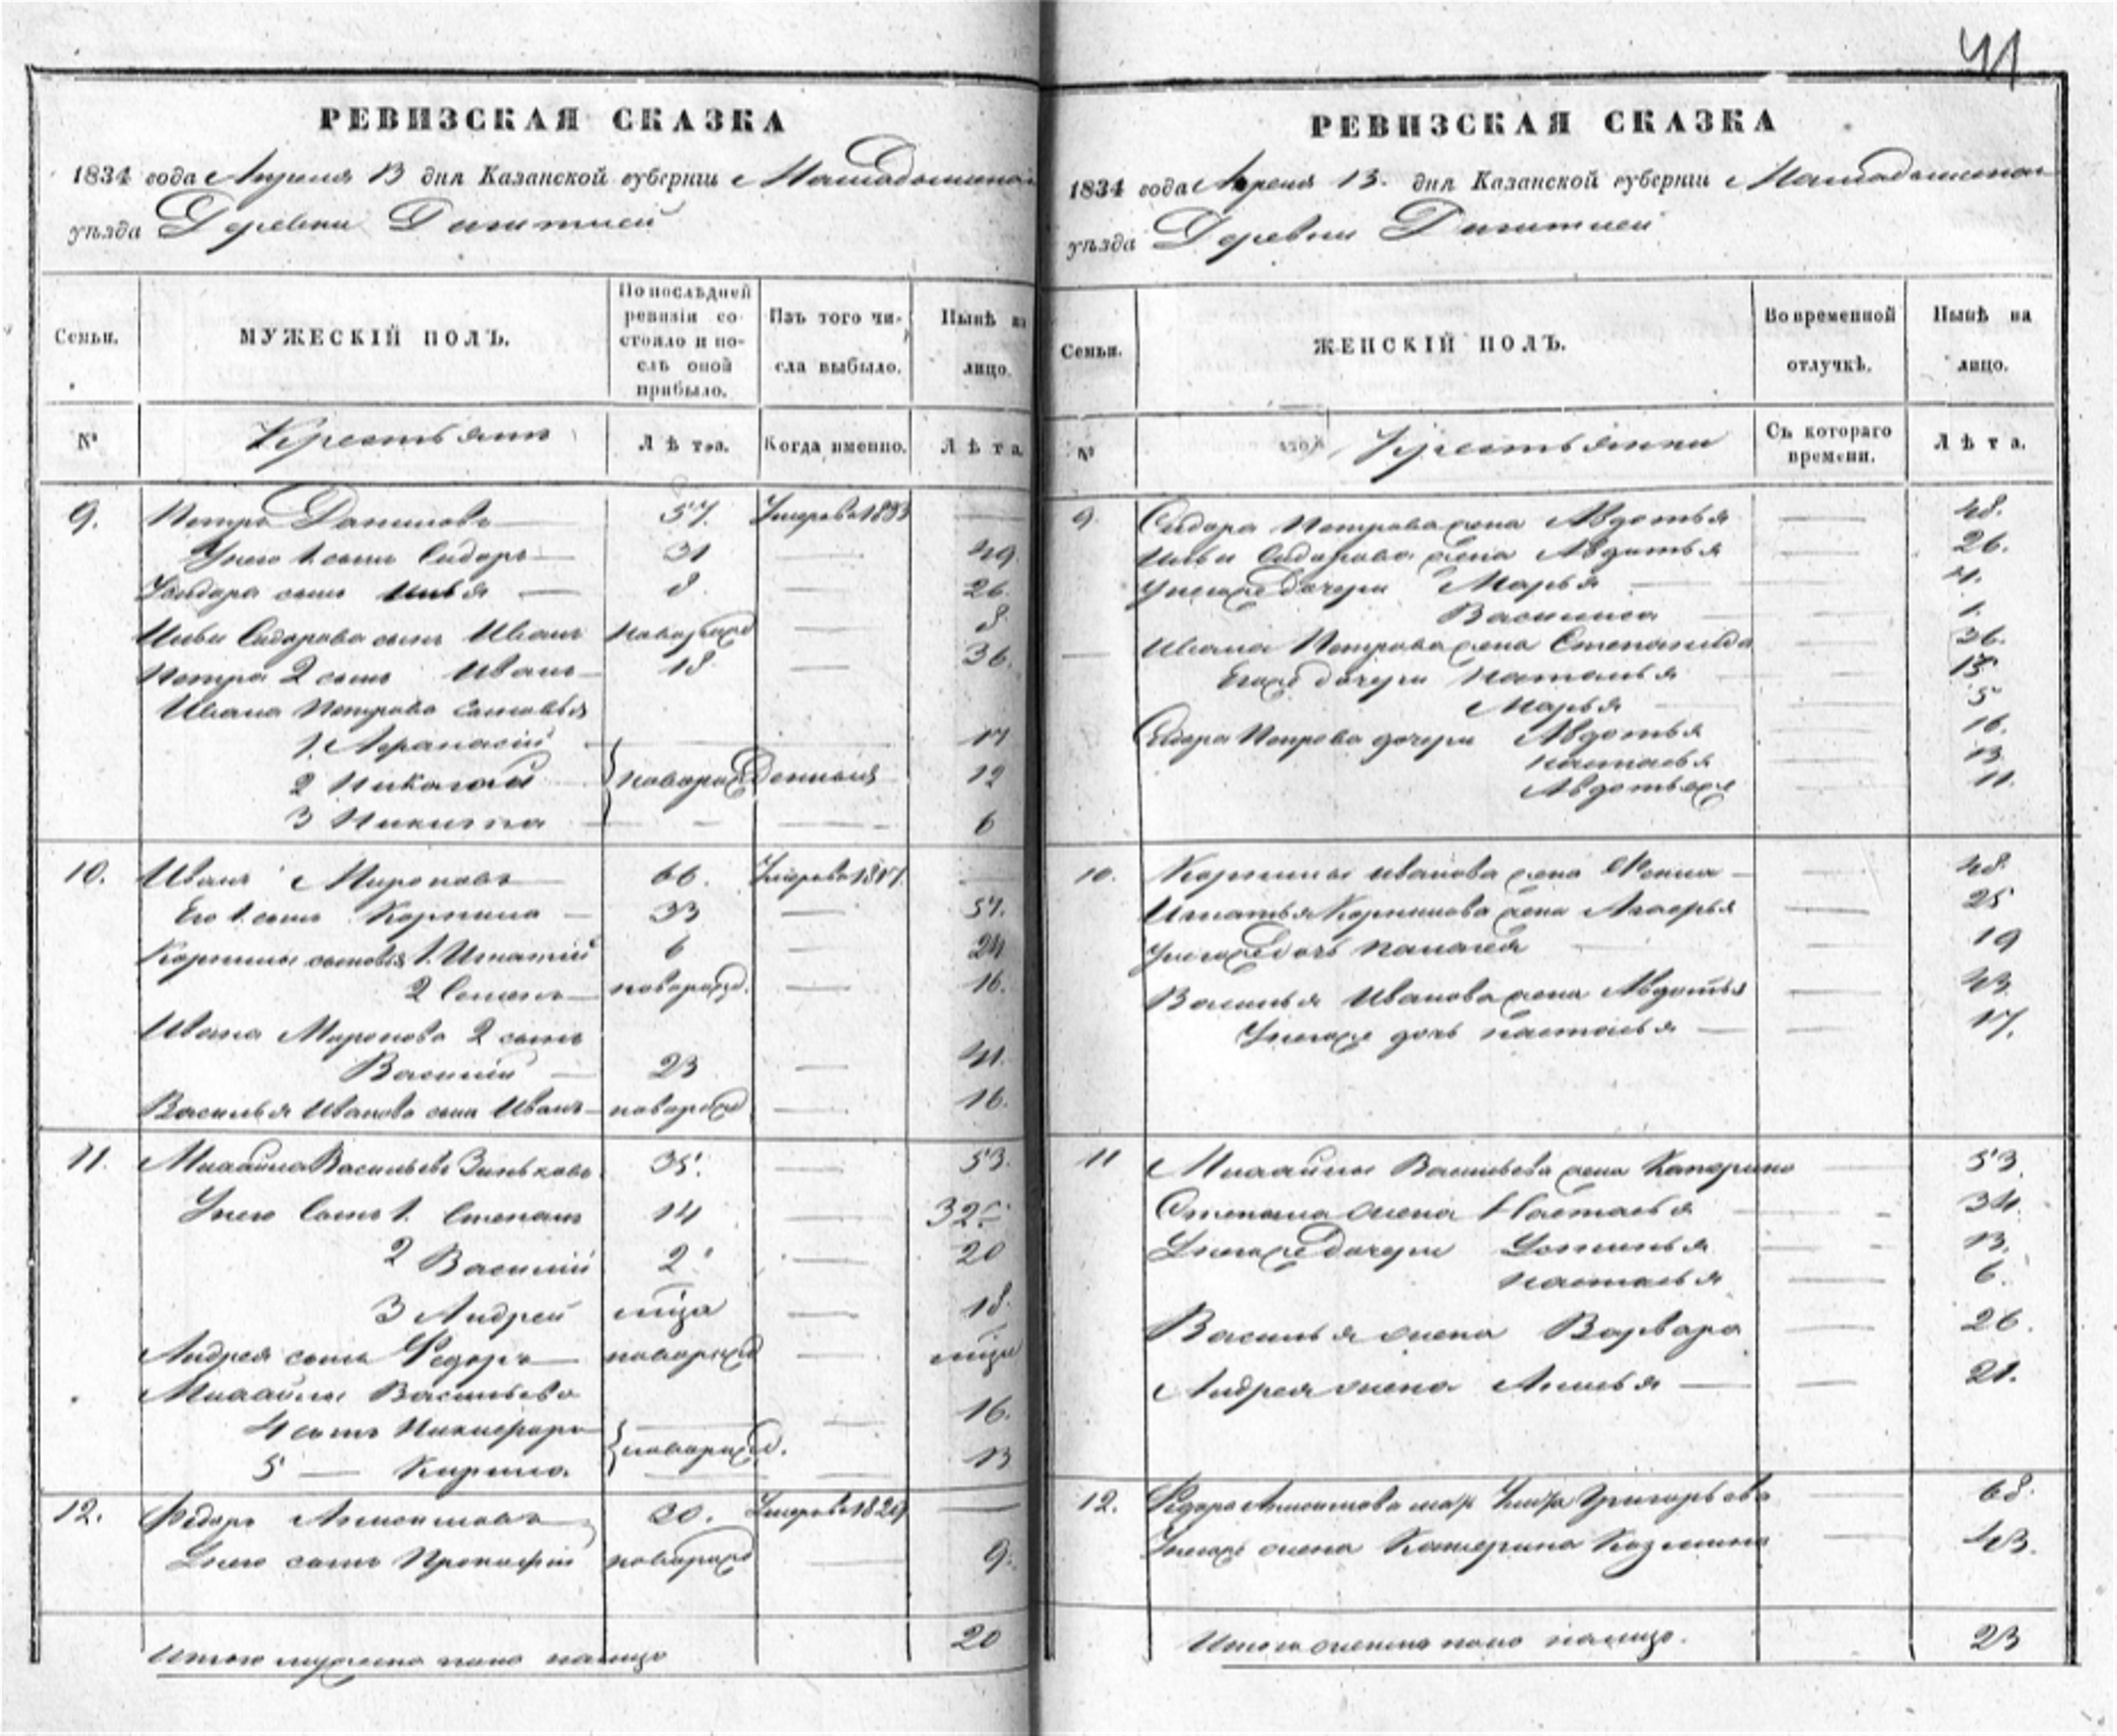 41
РЕВИЗСКАЯ СКАЗКА
1834 года Апреля 13 дня Казанской губернiи Мамадышскаго
уѣзда Деревни
Семьи.
МУЖЕСКIЙ ПОЛЪ.
По послѣдней ревизiи состояло и послѣ оной прибыло.
Изъ того числа выбыло.
Нынѣ на лицо.
№
Крестьянъ
Лѣта.
Когда именно.
Лѣта.
9. Петръ Даниловъ 57. Умеръ в 1833
У него 1. сынъ Сидоръ 31 49.
Сидора сынъ Илья 8 26.
Ильи Сидорова сынъ Иванъ новорожд 8
Петра 2 сынъ Иванъ 18 36.
Ивана Петрова сыновья
1. Афанасiй 17
2 Николай новорожденныя 12
3 Никита 6
10. Иванъ Мироновъ 66. Умеръ в 1817
Его 1. сынъ Корнила 33 51.
Корнилы сыновья 1. Игнатiй 6 24
2 Семенъ новорожд. 16.
Ивана Миронова 2 сынъ
Василiй 23 41.
Василья Иванова сынъ Иванъ новорожд 16.
11. Михайла Васильевъ Зиньковъ 35. 53.
У него сынъ 1. Степанъ 14 32
2 Василiй 2. 20
3 Андрей 18.
Андрея сынъ Федоръ новорожд
Михайлы Васильева
4 сынъ Никифоръ 16.
5 — Кирила новорожд. 13
12. Федоръ 20. Умеръ в 1824
У него сынъ Прокофiй новорожд 9.
Итого мужеска пола налицо 20
РЕВИЗСКАЯ СКАЗКА
1834 года Апреля 13. дня Казанской губернiи Мамадышскаго
уѣзда Деревни
Семьи.
ЖЕНСКIЙ ПОЛЪ.
Во временной отлучкѣ.
Нынѣ на лицо.
№
Крестьянки
Съ котораго времени.
Лѣта.
9. Сидора Петрова жена Авдотья 48.
Ильи Сидорова жена Авдотья 26.
У негоже дочери Марья 4.
Василиса 1.
Ивана Петрова жена Степанида 36.
Егоже дочери Наталья 15
Марья 5
Сидора Петрова дочери Авдотья 16.
Настасья 13
Авдотьяже 11.
10. Корнилы Иванова жена 48.
Игнатья Корнилова жена 25
У негоже дочь Пелагея 19
Василья Иванова жена Авдотья 43.
У негоже дочь Настасья 17.
11 Михайлы Васильева жена Катерина 53.
Степана жена Настасья 34.
У негоже дочери 13.
Настасья 6.
Василья жена Варвара 26.
Андрея жена 21.
12. Федора мать Григорьева 68.
У негоже жена Катерина Козмина 43.
Итого женска пола налицо. 23